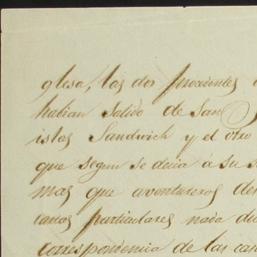 glesa, las dos procedentes
habian salido de San
islas Sandwich y el otro
que segun se decia á su
mas que aventureros
canos particulares nada
correspondencia de las